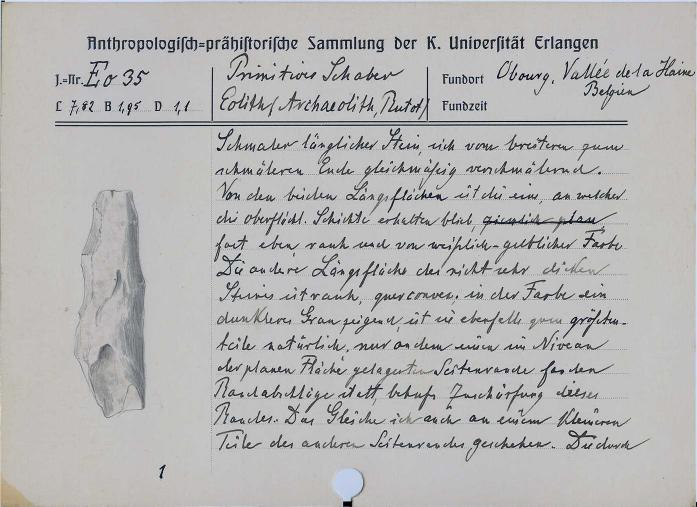 Anthropologisch=prähistorische Sammlung der K. Universität Erlangen
J.=Nr. Eo 35
L 7,82 B 1,95 D 1,1
Primitives Schaber
Eolith (Archaeolith, Rutot)
Fundort Obourg, Vallée de la Haine
Belgien
Fundzeit
Schmaler länglicher Stein, sich vom breiteren zum
schmäleren Ende gleichmäßig verschmälernd.
Von den beiden Längsflächen ist die eine, an welcher
die oberflächl. Schichte erhalten blieb, ziemlich plan,
fast eben, rauh und von weißlich-gelblicher Farbe
Die andere Längsfläche des nicht sehr dicken
Steines ist rauh, quer convex, in der Farbe ein
dunkleres Grau zeigend, ist sie ebenfalls zum größten-
teile natürlich, nur an dem einen im Niveau
der planen Fläche gelagerten Seitenrande fanden
Randabschläge statt, behufs Zuschärfung dieses
Randes. Das Gleiche ist auch an einem kleineren
Teile des anderen Seitenrandes geschehen. Die durch
1